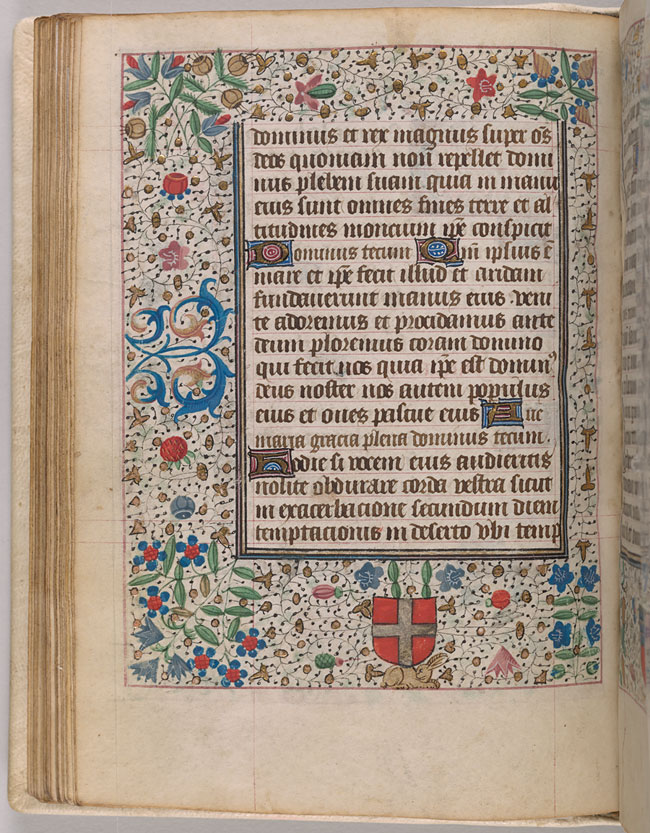 dominus et rex magnus super o̅s
deos quoniam non̅ repellet domi
nus plebem suam quia in manu
eius sunt omnes fines terre et al
titudines moncium ip̅e conspicit
Dominus tecum Qn̅ ipsius e̅
mare et ip̅e fecit illud et aridam
fundaverunt manus eius. veni
te adoremus et procidamus ante
deum ploremus coram domino
qui fecit nos quia ip̅e est domin⁹
deus noster nos autem populus
eius et oves pascue eius Aue
maria gracia plena dominus tecum.
Hodie si vocem eius audieritis
nolite obdurare corda vestra sicut
in exacerbacione secundum diem
temptacionis in deserto vbi temp